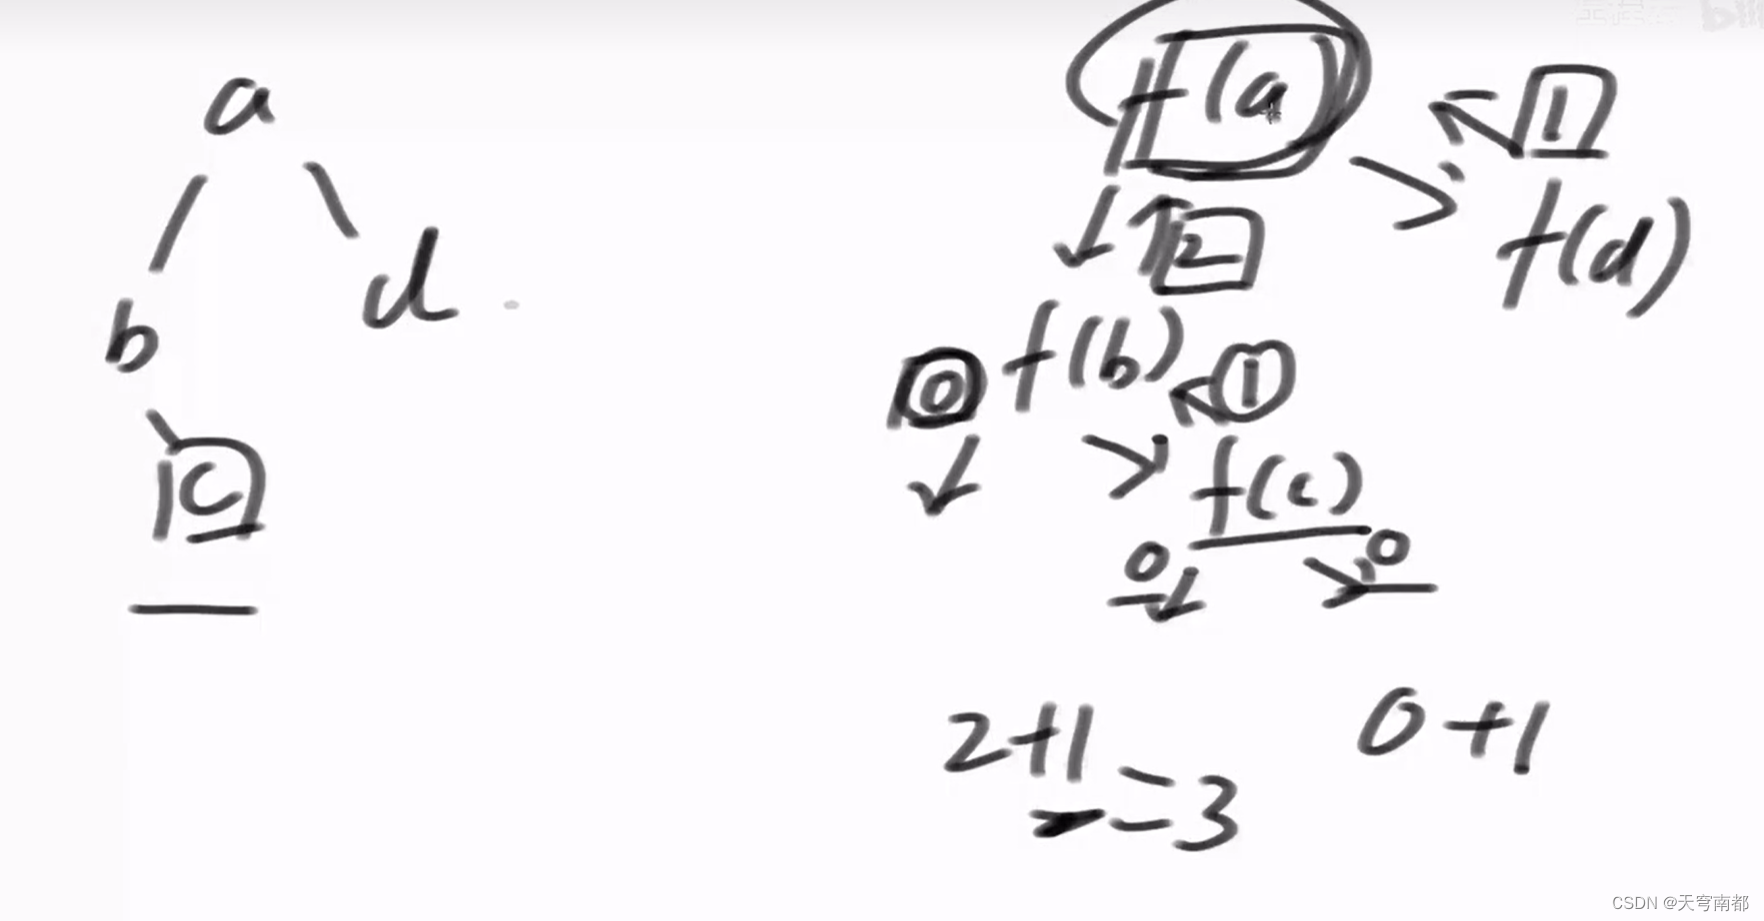 a
b
d
c
f(a)
1
f(d)
2
0 f(b) 1
f(c)
0 0
2+1
=3
0+1
CSDN @天穹南都